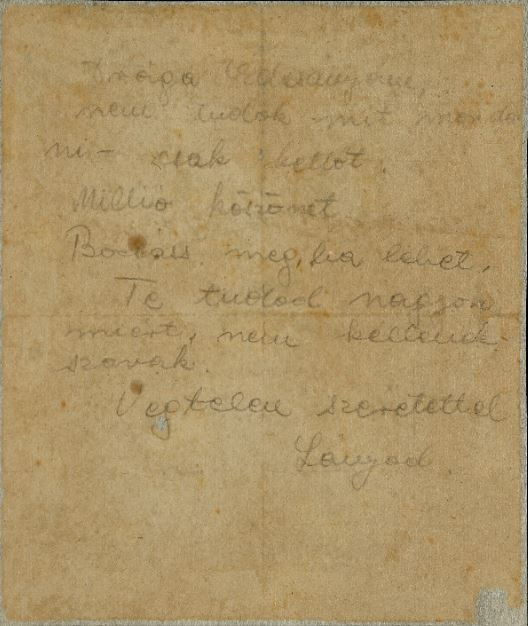 Drága Édesanyám,
nem tudok mit monda
ni - csak kettőt.
Millió köszönet
Bocsáss meg, ha lehet.
Te tudod nagyon
miért, nem kellenek
szavak.
Végtelen szeretettel
Lányod.